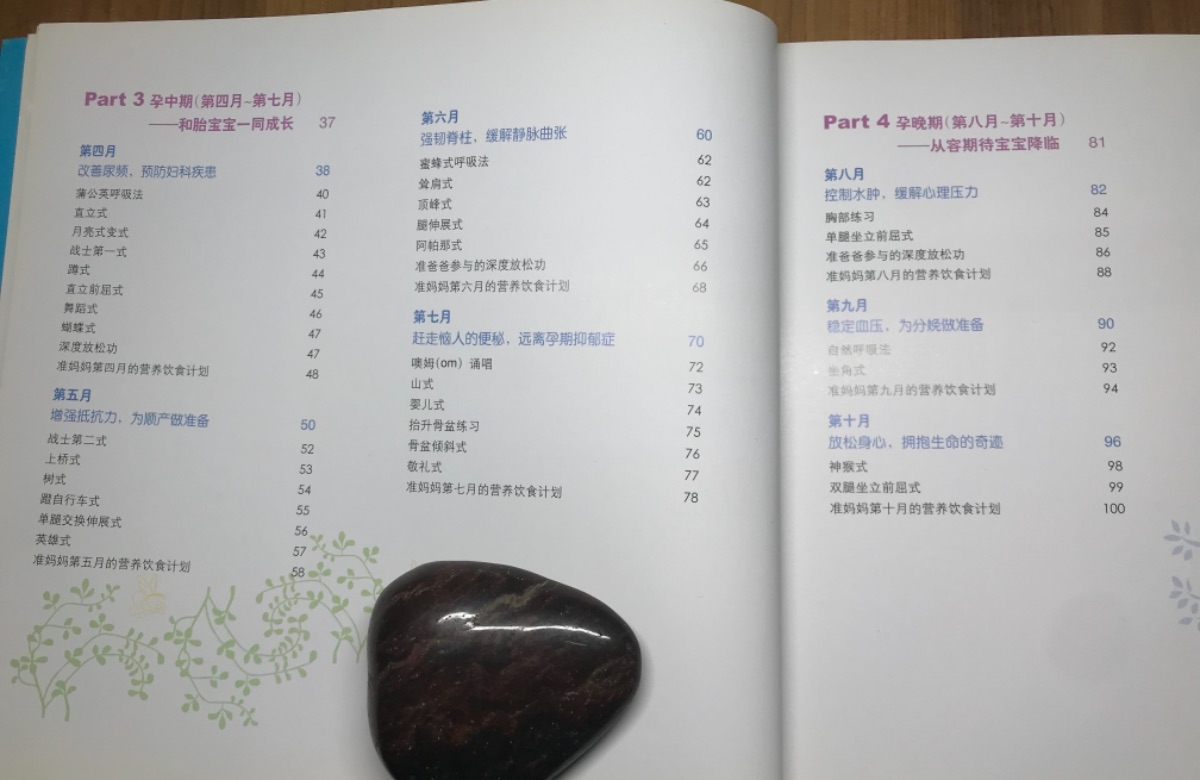 Part 3 孕中期(第四月~第七月)
——和胎宝宝一同成长 37
第四月
改善尿频，预防妇科疾患 38
蒲公英呼吸法 40
直立式 41
月亮式变式 42
战士第一式 43
蹲式 44
直立前屈式 45
舞蹈式 46
蝴蝶式 47
深度放松功 47
准妈妈第四月的营养饮食计划 48
第五月
增强抵抗力，为顺产做准备 50
战士第二式 52
上桥式 53
树式 54
蹬自行车式 55
单腿交换伸展式 56
英雄式 57
准妈妈第五月的营养饮食计划 58
第六月
强韧脊柱，缓解静脉曲张 60
蜜蜂式呼吸法 62
耸肩式 62
顶峰式 63
腿伸展式 64
阿帕那式 65
准爸爸参与的深度放松功 66
准妈妈第六月的营养饮食计划 68
第七月
赶走恼人的便秘，远离孕期抑郁症 70
噢姆(om) 诵唱 72
山式 73
婴儿式 74
抬升骨盆练习 75
骨盆倾斜式 76
敬礼式 77
准妈妈第七月的营养饮食计划 78
Part 4 孕晚期(第八月~第十月)
——从容期待宝宝降临 81
第八月
控制水肿，缓解心理压力 82
胸部练习 84
单腿坐立前屈式 85
准爸爸参与的深度放松功 86
准妈妈第八月的营养饮食计划 88
第九月
稳定血压，为分娩做准备 90
自然呼吸法 92
坐角式 93
准妈妈第九月的营养饮食计划 94
第十月
放松身心，拥抱生命的奇迹 96
神猴式 98
双腿坐立前屈式 99
准妈妈第十月的营养饮食计划 100